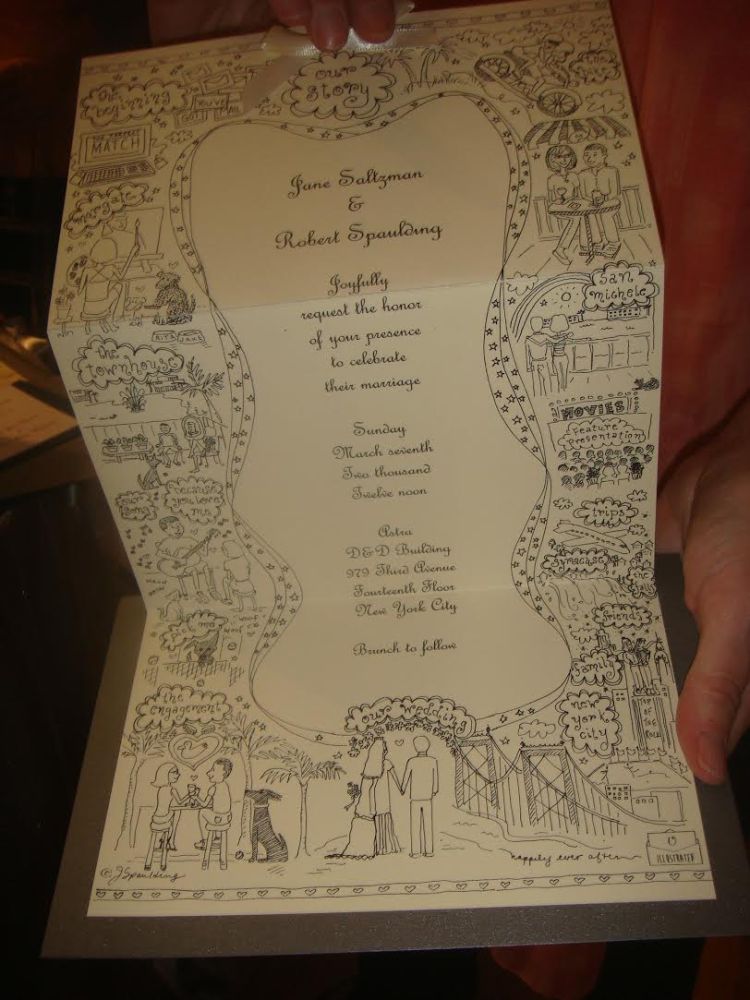 our
story
the
beginning
YOU'VE
GOT MAIL
THE PERFECT
MATCH
margate
the
townhouse
our
song
because
you loved
me
woof
woof
the
engagement
Jane Saltzman
&
Robert Spaulding
Joyfully
request the honor
of your presence
to celebrate
their marriage
Sunday
March seventh
Two thousand
Twelve noon
Astra
D&D Building
979 Third Avenue
Fourteenth Floor
New York City
Brunch to follow
our wedding
the
San
michele
MOVIES
feature
presentation
trips
syracuse
the
falls
friends
family
new
york
city
TOP
OF
THE
ROCK
happily ever after
ILLUSTRATED
© JSpaulding